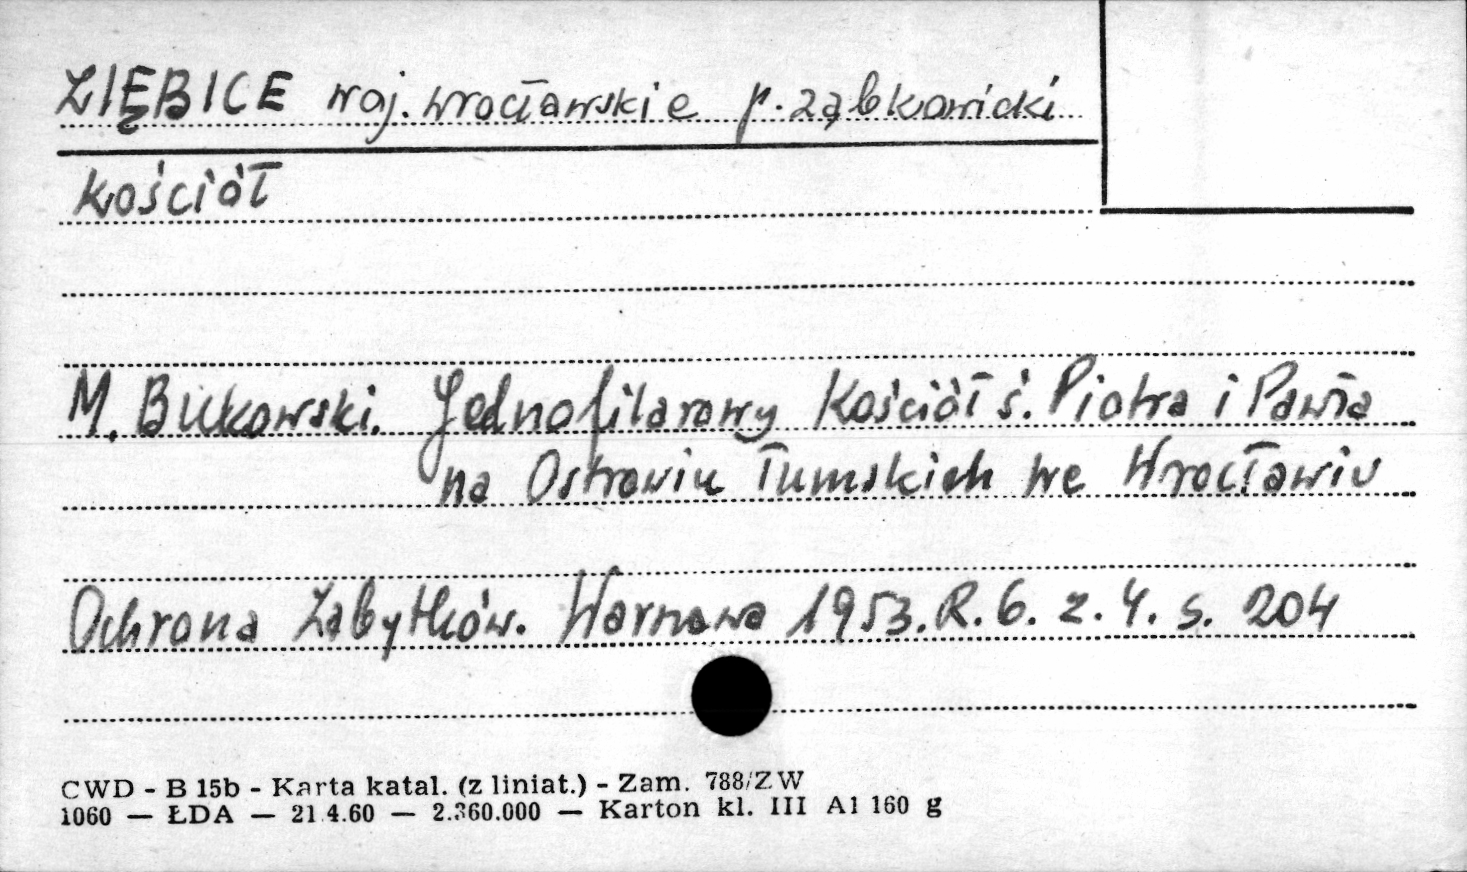 ZIĘBICE woj. wrocławskie p. ząbkowicki
Kościół
M. Bukowski. Jednofilarowy Kościół ś. Piotra i Pawła
na Ostrowiu Tumskich we Wrocławiu
Ochrona Zabytków. Warszawa 1953. R. 6. z. 4. s. 204
CWD - B 15b - Karta katal. (z liniat.) - Zam. 788/ZW
1060 — ŁDA — 21.4.60 — 2.360.000 — Karton kl. III A1 160 g